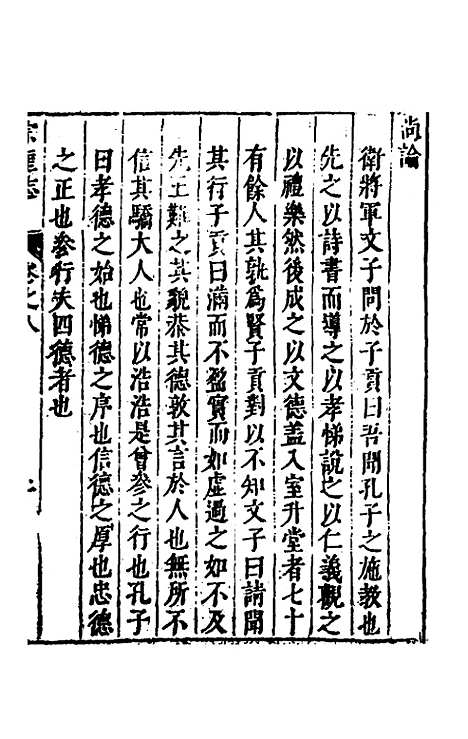 尚論
衛將軍文子問於子貢曰吾聞孔子之施教也
先之以詩書而導之以孝悌說之以仁義觀之
以禮樂然後成之以文德蓋入室升堂者七十
有餘人其孰爲賢子貢對以不知文子曰請聞
其行子貢曰滿而不盈實而如虛過之如不及
先王難之其貌恭其德敦其言於人也無所不
信其驕大人也常以浩浩是曾參之行也孔子
曰孝德之始也悌德之序也信德之厚也忠德
之正也參行夫四德者也
宗聖志
卷之八